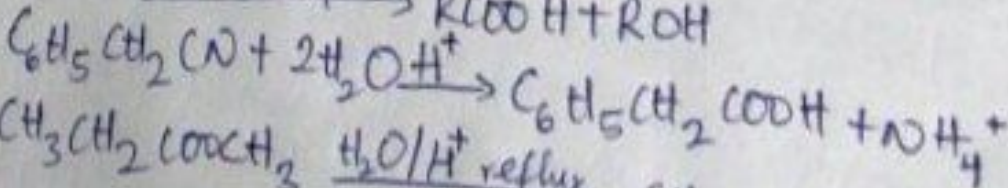 → RCOOH + ROH
C₆H₅CH₂CN + 2H₂O H⁺→ C₆H₅CH₂COOH + NH₄⁺
CH₃CH₂COOCH₃ H₂O/H⁺ reflux